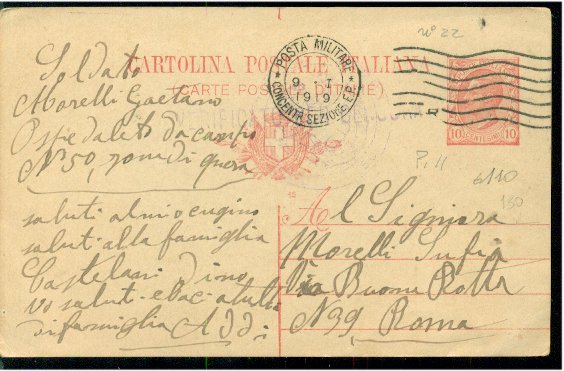 nº 22
CARTOLINA POSTALE ITALIANA
(CARTE POSTALE D'ITALIE)
POSTA MILITARE
9 - 1
1919
CONCENTR. SEZIONE F.P.
10 CENTESIMI 10
Soldato
Morelli Gaetano
Ospedaleto da campo
Nº 50, zona di guera
saluti al mio cugino
saluti alla famiglia
Castelani Dino
vo saluti e baci a tutta
di famiglia Addi
P. 11
6110
150
Al Signora
Morelli
Via Buon
N 39 Roma